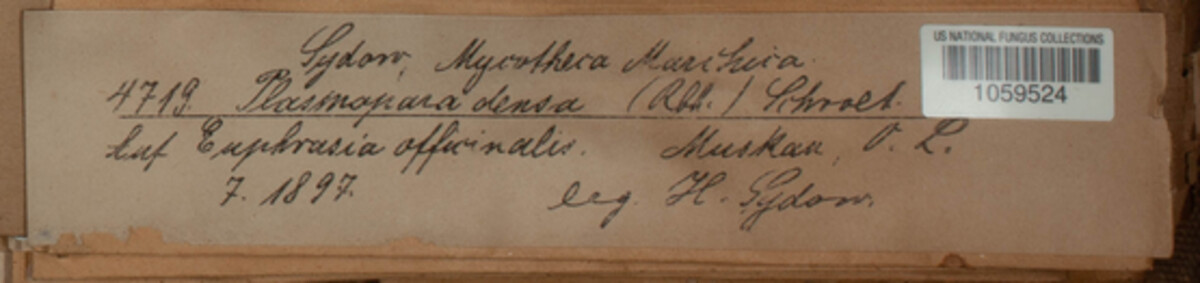 Sydow, Mycotheca Marchica.
4719. Plasmopara densa (Rbh.) Schroet.
Auf Euphrasia officinalis. Muskau, O. L.
7. 1897. leg. H. Sydow.
US NATIONAL FUNGUS COLLECTIONS
1059524